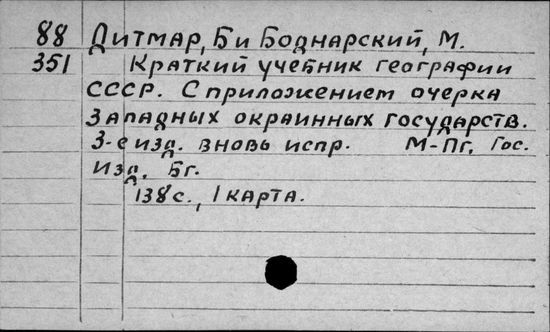 88 Дитмар, Б и Боднарский, М.
351 Краткий учебник географии
СССР. С приложением очерка
Западных окраинных государств.
3-е изд. вновь испр. М-Пг. Гос.
Изд. Бг.
138 с., 1 карта.